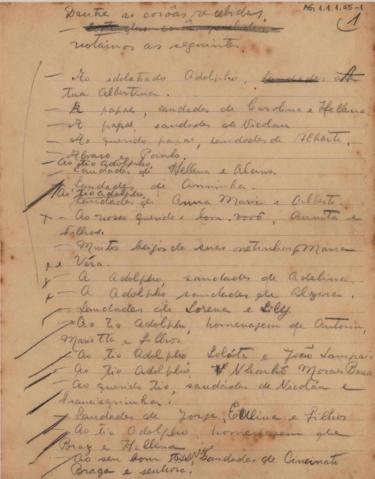 AG. 1.1.1.65-1
1
Dentre as corôas recebidas,
notámos as seguintes:
— Ao idolatrado Adolpho, A
tua Albertina.
— A papae, saudades de Carolina e Hellena
— A papae, saudades de Nicolau
— Ao querido papae, saudades de Alberto,
Alvaro e Paulo.
Ao tio Adolpho,
— Saudades de Hellena e
— Saudades de Anninha.
Ao tio Adolpho
Saudades de Anna Maria e Gilberto
x — Ao nosso querido e bom vovô, Annita e
filhos.
— Muitos beijos de suas netinhas Maria
x e Véra.
x — A Adolpho saudades de Adelina.
— A Adolpho saudades de
— Saudades de Lorena e Lily
— Ao tio Adolpho, homenagem de Antonio,
Mariette e filhos
Ao tio Adolpho Lolóte e João Sampaio
— Ao tio Adolpho, Nhonhô Moraes Barros
Ao querido tio, saudades de Nicolau e
Francisquinha.
— Saudades de Jorge, Edlina e filhos
— Ao tio Adolpho homenagem de
Braz e Hellena
Ao seu bom saudades de Cincinato
Braga e senhora.